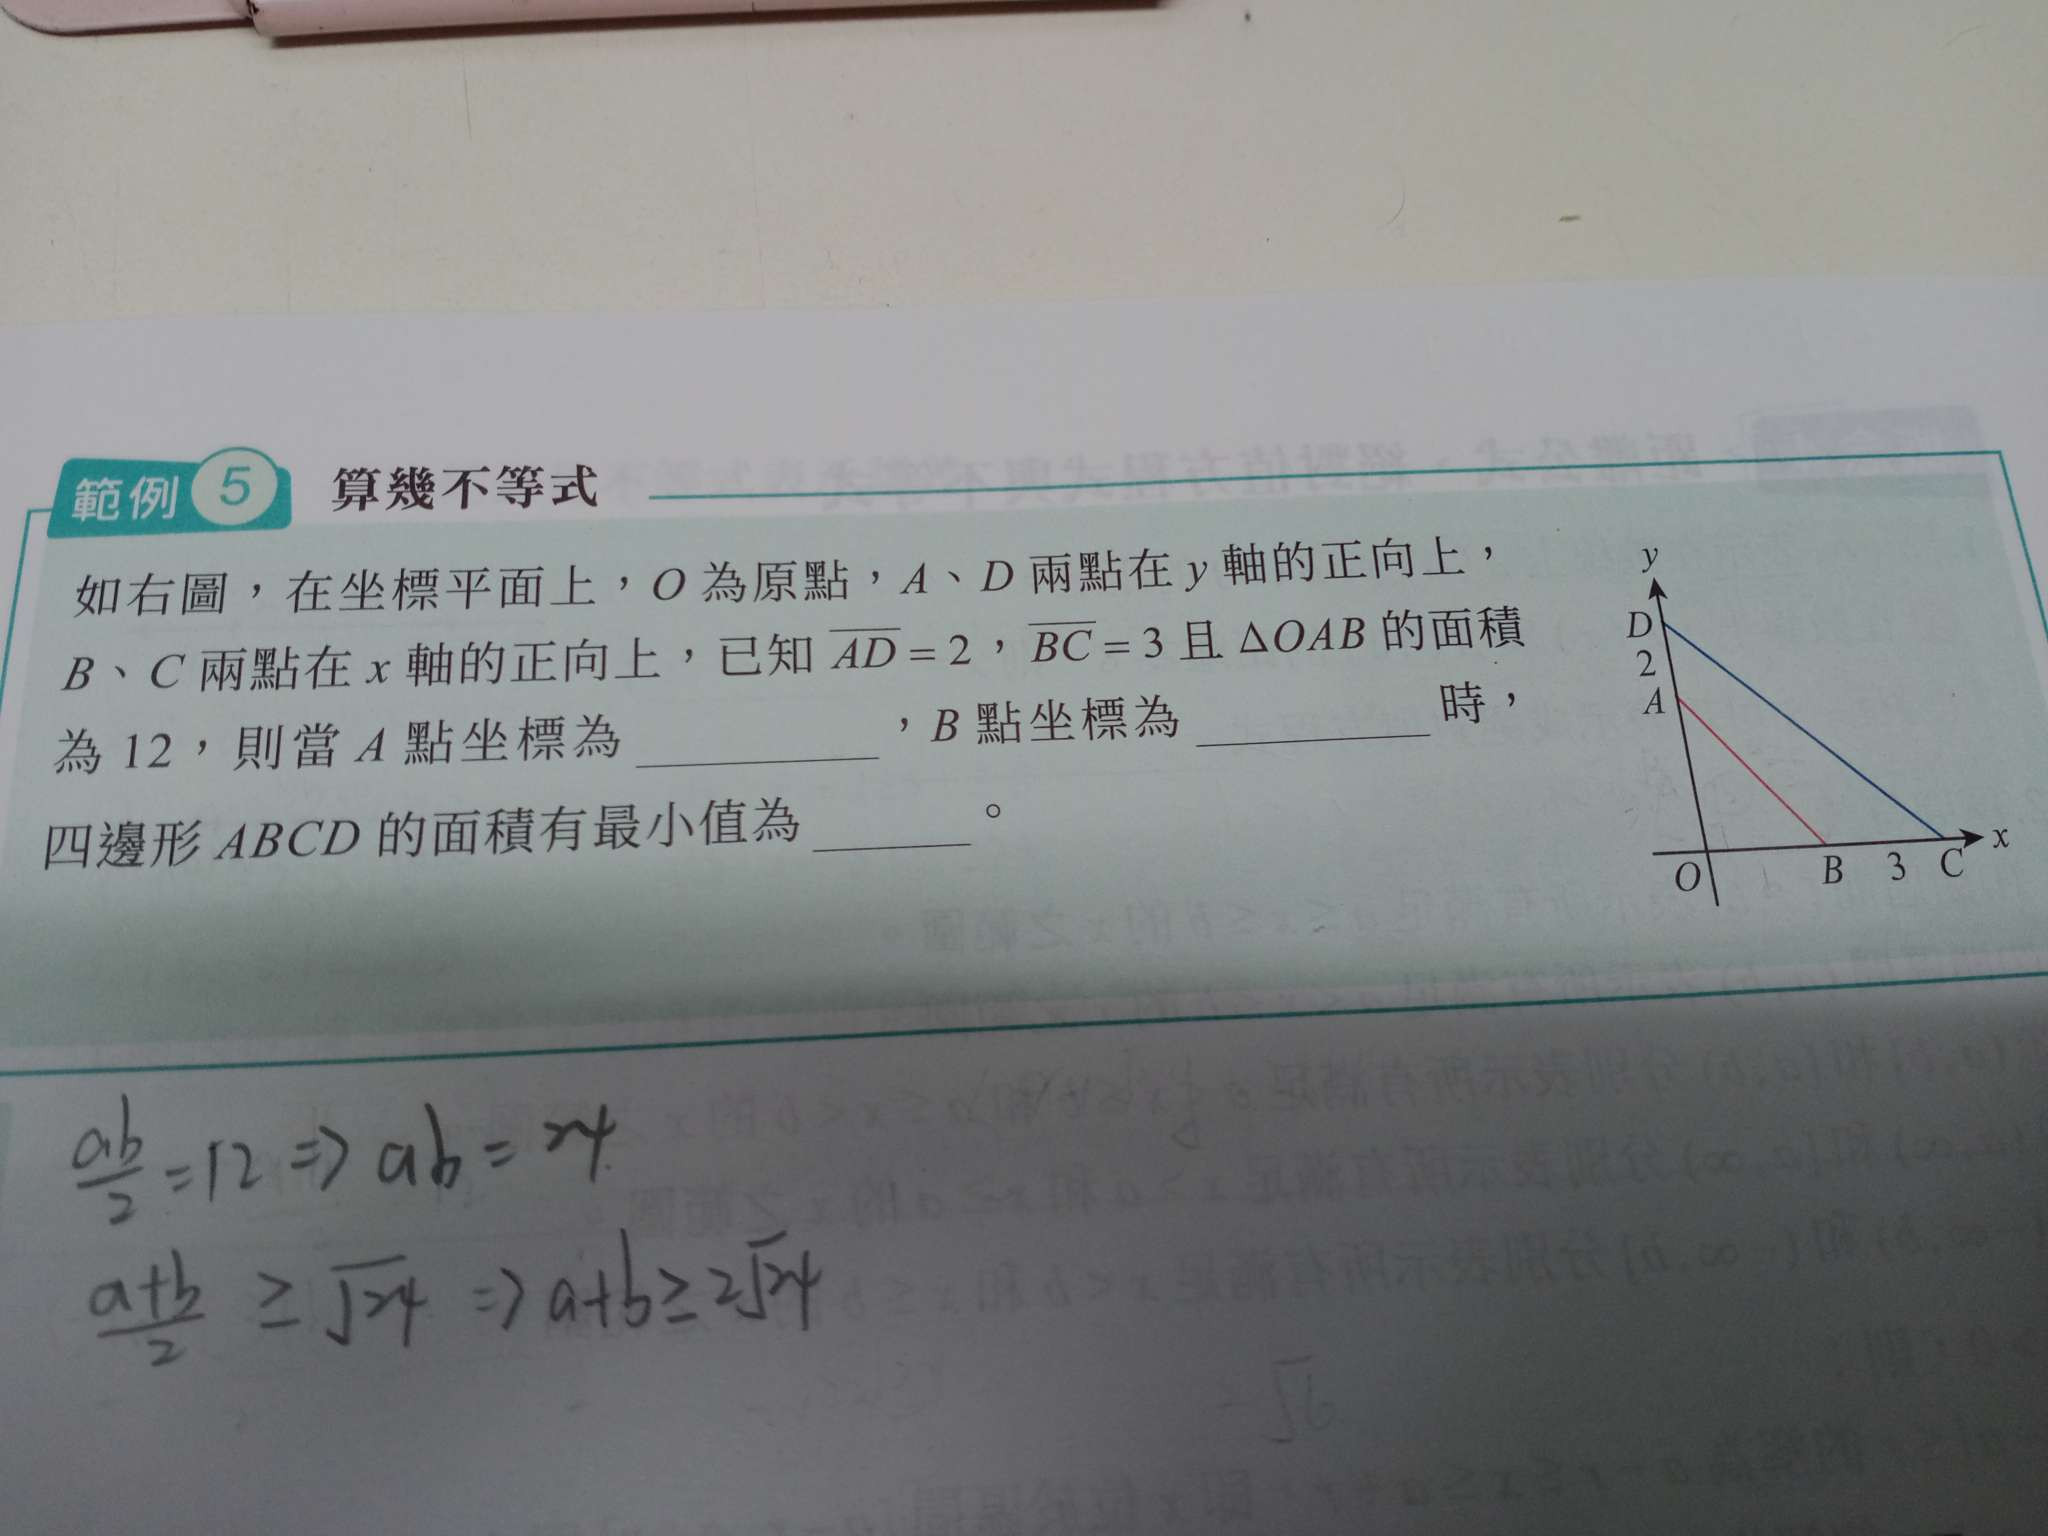 範例 5 算幾不等式
如右圖，在坐標平面上，O 為原點，A、D 兩點在 y 軸的正向上，
B、C 兩點在 x 軸的正向上，已知 \overline{AD} = 2，\overline{BC} = 3 且 ΔOAB 的面積
為 12，則當 A 點坐標為 ________，B 點坐標為 ________ 時，
四邊形 ABCD 的面積有最小值為 ______。
y
D
2
A
O
B
3
C
x
ab/2 = 12 ⇒ ab = 24
a+b/2 ≥ √24 ⇒ a+b ≥ 2√24